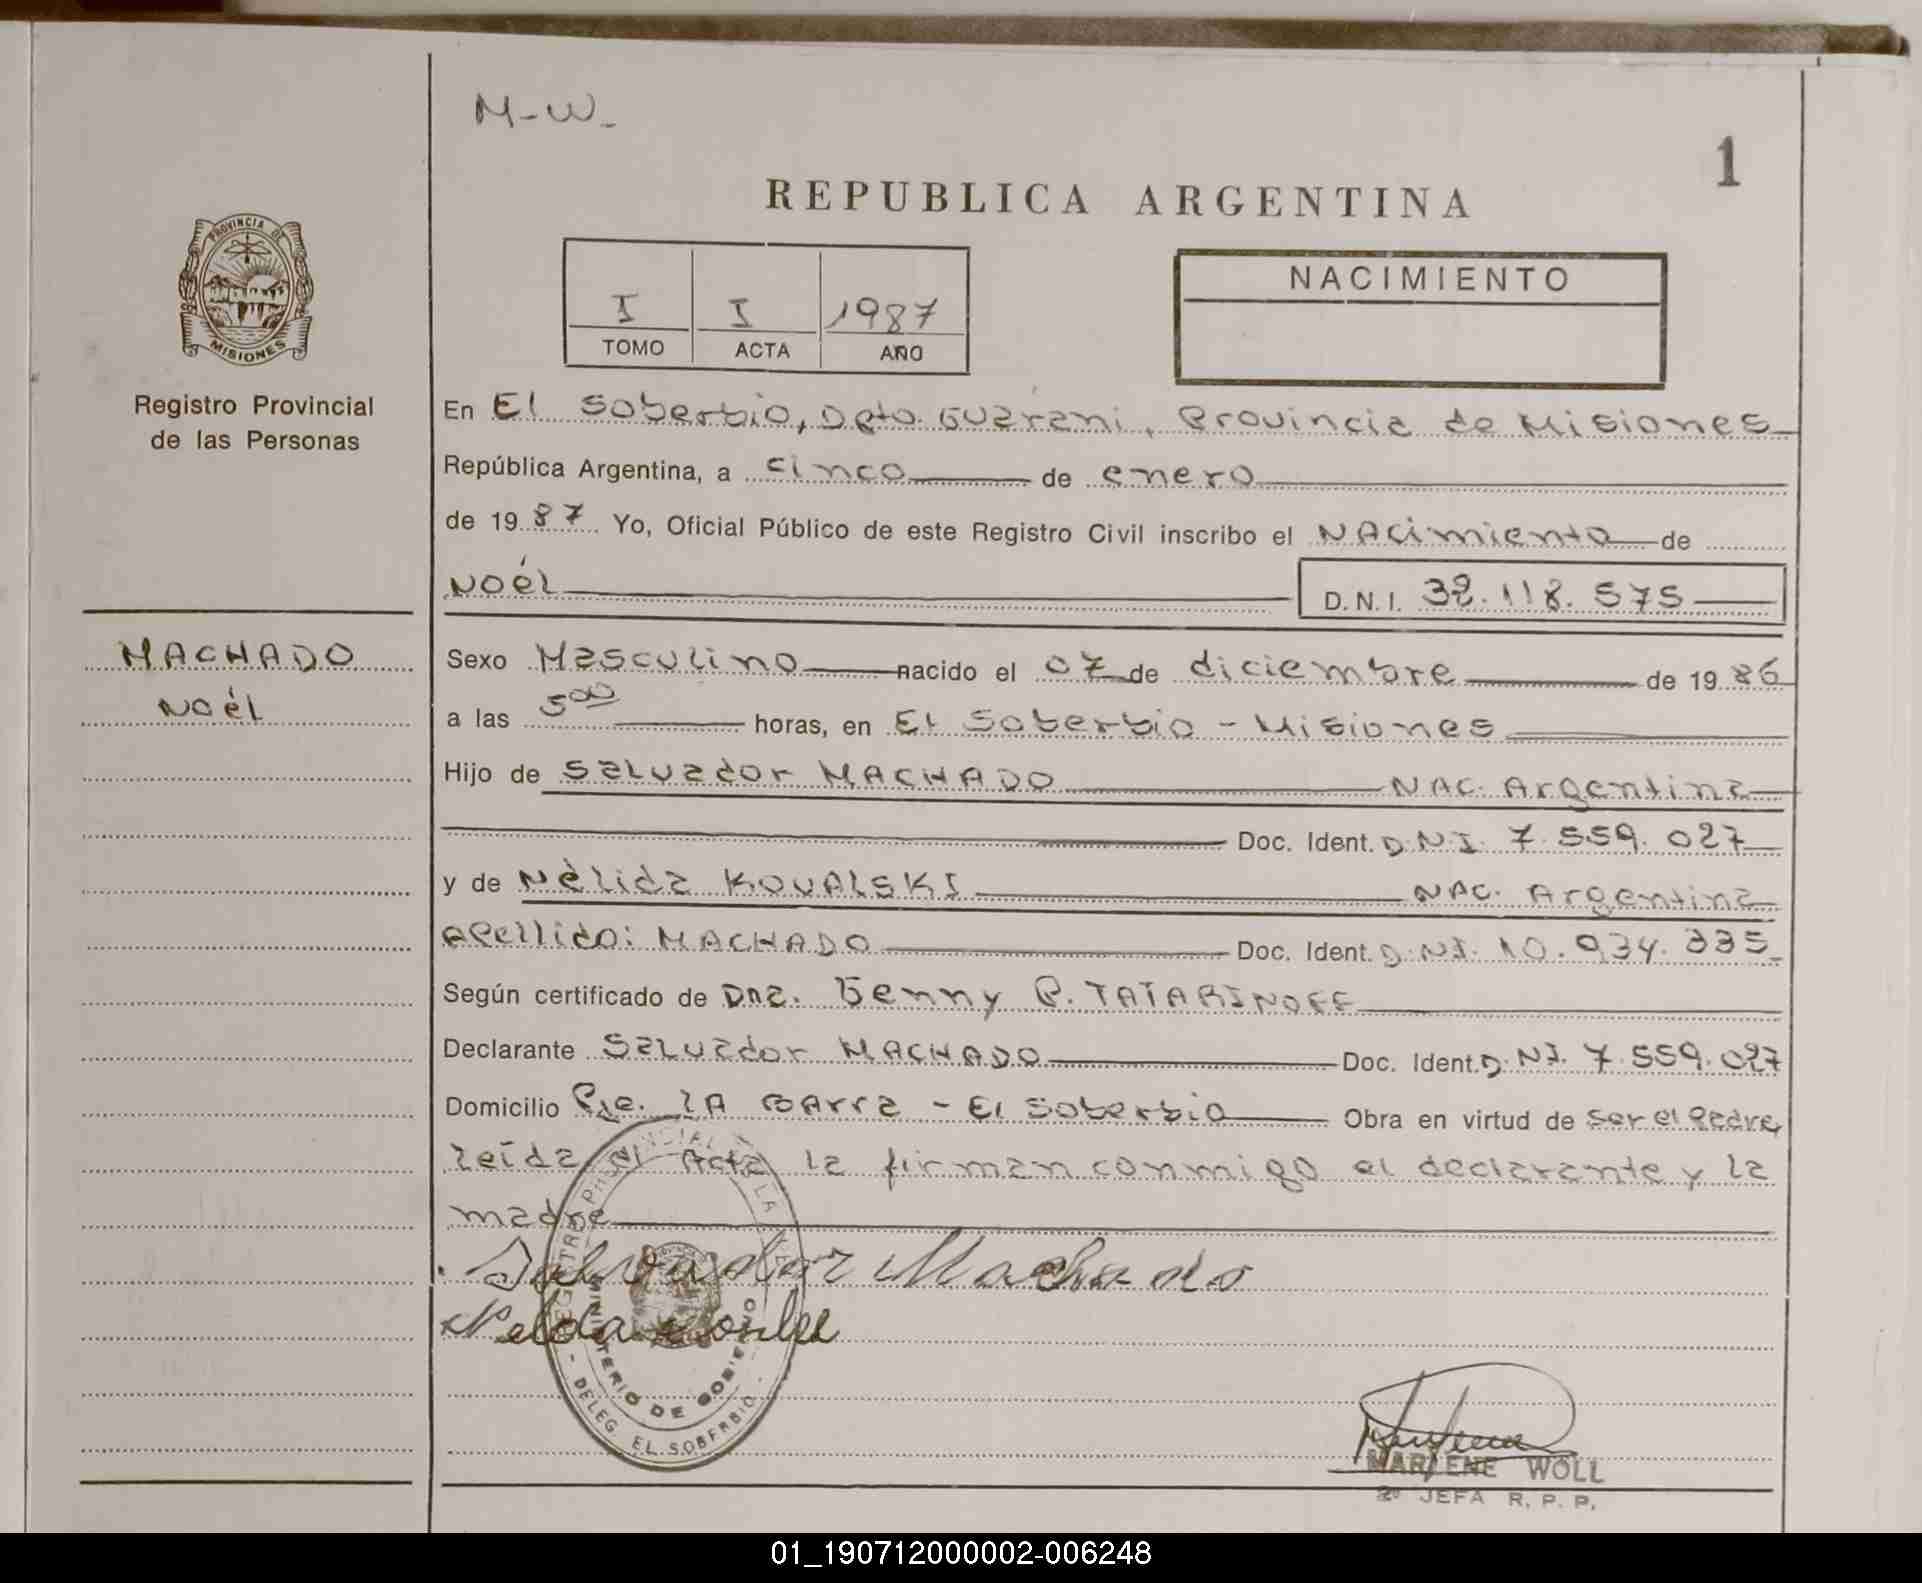 M-W-
1
REPUBLICA ARGENTINA
PROVINCIA DE
MISIONES
Registro Provincial
de las Personas
I I 1987
TOMO ACTA AÑO
NACIMIENTO
En El Soberbio, Dpto. Guarani, Provincia de Misiones
República Argentina, a cinco de enero
de 1987 Yo, Oficial Público de este Registro Civil inscribo el NAcimiento de
Noél D.N.I. 32.118.575
MACHADO
Noél
Sexo Masculino nacido el 07 de diciembre de 1986
a las 5:00 horas, en El Soberbio - Misiones
Hijo de Salvador MACHADO NAC. Argentina
Doc. Ident. D.N.I. 7.559.027
y de Nélida KOVALSKI NAC. Argentina
apellido: MACHADO Doc. Ident. D.NI. 10.934.335
Según certificado de Dña. Genny P. TATARINOFF
Declarante Salvador MACHADO Doc. Ident. D.NI. 7.559.027
Domicilio Pje. lA BArra - El Soberbio Obra en virtud de ser el padre,
leída el Acta la firman conmigo el declarante y la
madre
Salvador Machado
REGISTRO PROVINCIAL DE LA
MINISTERIO DE GOBIERNO
- DELEG. EL SOBERBIO -
MARLENE WOLL
2º JEFA R. P. P.
01_190712000002-006248